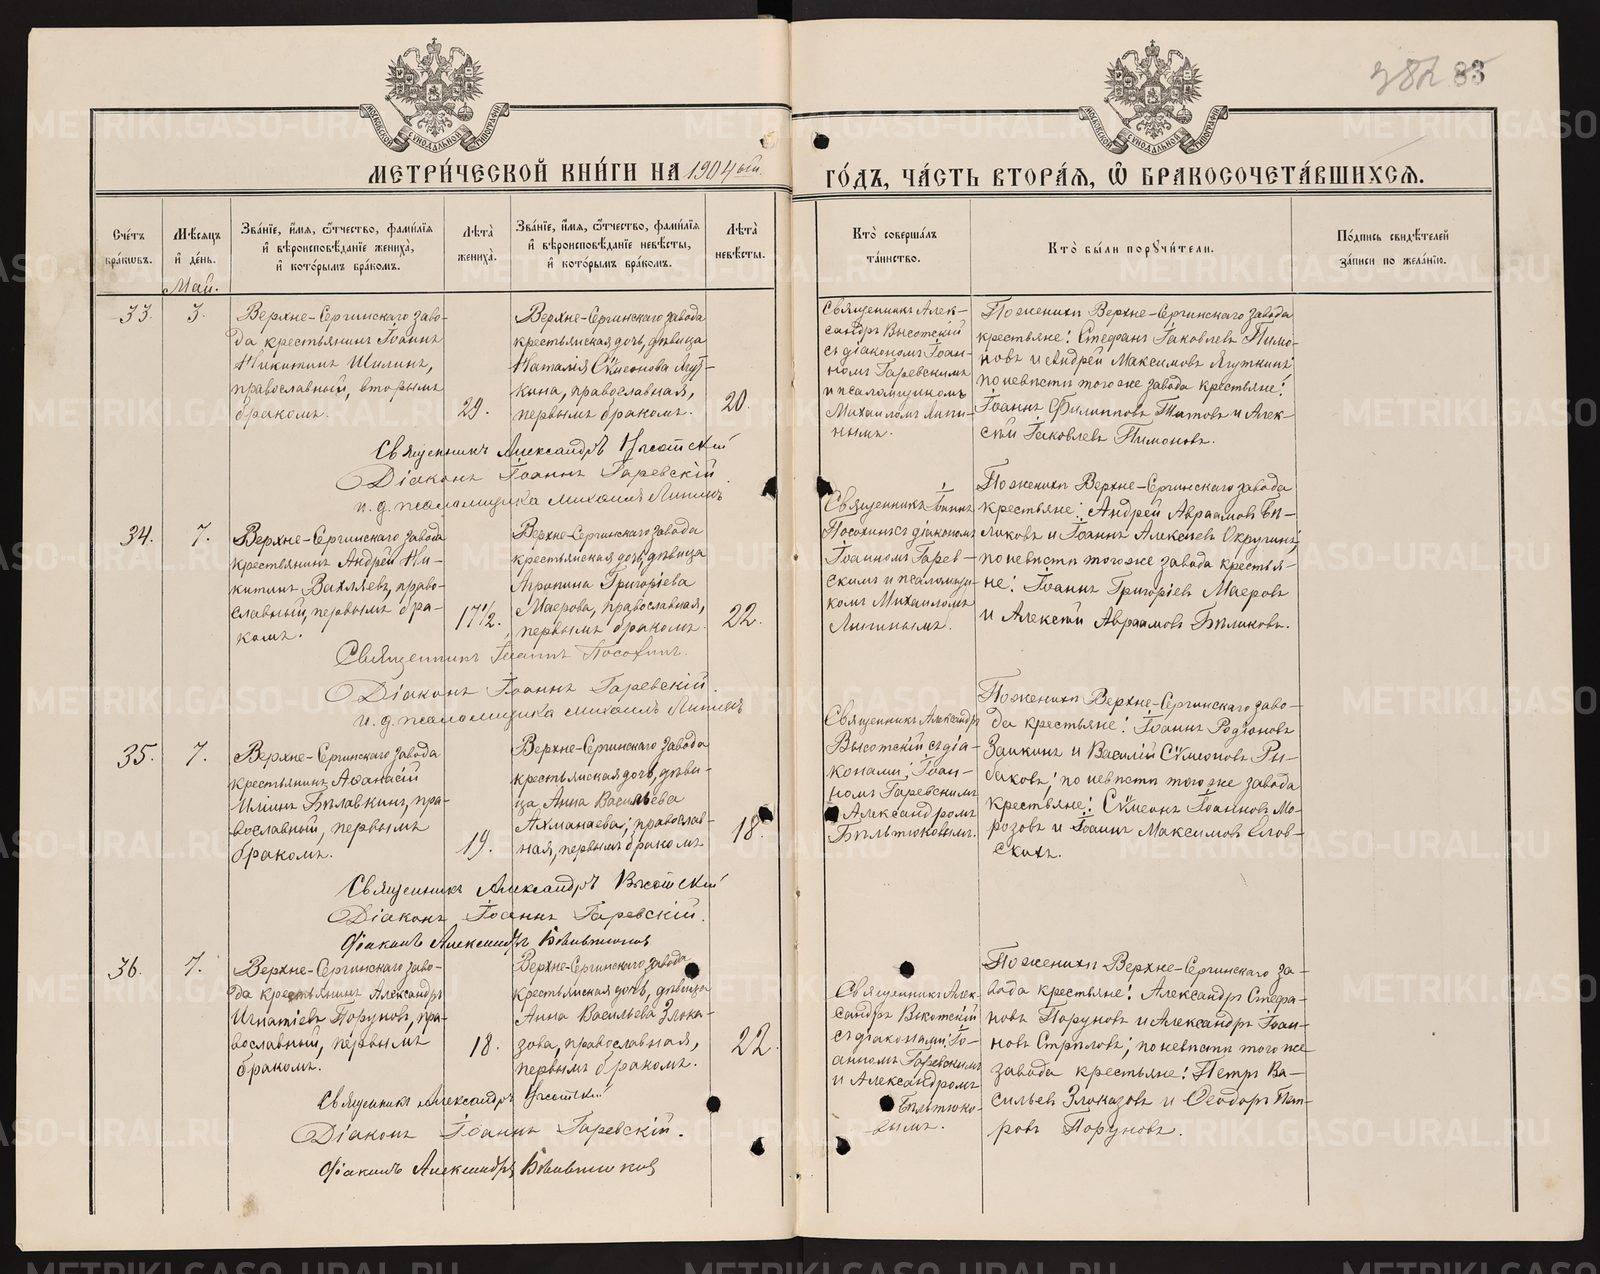 382 83
МОСКОВСКОЙ СУНОДАЛЬНОЙ ТИПОГРАФІИ
МОСКОВСКОЙ СУНОДАЛЬНОЙ ТИПОГРАФІИ
МЕТРИ́ЧЕСКОЙ КНИ́ГИ НА 1904 ый
ГО́ДЪ, ЧА́СТЬ ВТОРА́Я, Ѽ БРАКОСОЧЕТА́ВШИХСЯ.
Сче́тъ бра́кωвъ.
Мѣ́сяцъ и҆ де́нь.
Зва́нїе, и҆́мя, ѻ҆́тчество, фами́лїя и҆ вѣроисповѣ́данїе жениха̀, и҆ кото́рымъ бра́комъ.
Лѣта̀ жениха̀.
Зва́нїе, и҆́мя, ѻ҆́тчество, фами́лїя и҆ вѣроисповѣ́данїе невѣ́сты, и҆ кото́рымъ бра́комъ.
Лѣта̀ невѣ́сты.
Кто̀ соверша́лъ та́инство.
Кто̀ бы́ли порꙋчи́тели.
По́дпись свидѣ́телей за́писи по жела́нїю.
Май.
33.
3.
Верхне-Сергинскаго заво-
да крестьянинъ Іоаннъ
Никитинъ Шилинъ,
православный, вторымъ
бракомъ.
29.
Верхне-Сергинскаго завода
крестьянская дочь, дѣвица
Наталія Сѵмеонова Ягут-
кина, православная,
первымъ бракомъ.
20.
Священникъ Алек-
сандръ Высотскій
съ діакономъ Іоан-
номъ Гаревскимъ
и псаломщикомъ
Михаиломъ Липи-
нымъ.
По женихѣ Верхне-Сергинскаго завода
крестьяне: Стефанъ Іаковлевъ Пимо-
новъ и Андрей Максимовъ Ягуткинъ;
по невѣстѣ того же завода крестьяне:
Іоаннъ Филипповъ Титовъ и Алек-
сѣй Іаковлевъ Пимоновъ.
Священникъ Александръ Высотский
Діаконъ Іоаннъ Гаревскій
и. д. псаломщика Михаилъ Липинъ.
34.
7.
Верхне-Сергинскаго завода
крестьянинъ Андрей Ни-
китинъ Вахляевъ, право-
славный, первымъ бра-
комъ.
17½.
Верхне-Сергинскаго завода
крестьянская дочь, дѣвица
Агрипина Григоріева
Маерова, православная,
первымъ бракомъ.
22.
Священникъ Іоаннъ
Посохинъ съ діакономъ
Іоанномъ Гарев-
скимъ и псаломщи-
комъ Михаиломъ
Липинымъ.
По женихѣ Верхне-Сергинскаго завода
крестьяне: Андрей Авраамовъ Бѣ-
ликовъ и Іоаннъ Алексѣевъ Округинъ;
по невѣстѣ того же завода крестья-
не: Іоаннъ Григоріевъ Маеровъ
и Алексѣй Авраамовъ Бѣликовъ.
Священникъ Іоаннъ Посохинъ.
Діаконъ Іоаннъ Гаревскій.
и. д. псаломщика Михаилъ Липинъ
35.
7.
Верхне-Сергинскаго завода
крестьянинъ Аѳанасій
Иліинъ Бѣлавкинъ, пра-
вославный, первымъ
бракомъ.
19.
Верхне-Сергинскаго завода
крестьянская дочь, дѣви-
ца Анна Васильева
Ахманаева; православ-
ная, первымъ бракомъ
18.
Священникъ Александръ
Высотскій съ діа-
конами: Іоан-
номъ Гаревскимъ
и Александромъ
Бѣльтюковымъ.
По женихѣ Верхне-Сергинскаго заво-
да крестьяне: Іоаннъ Родіоновъ
Заикинъ и Василій Сѵмеоновъ Ры-
баковъ; по невѣстѣ того же завода
крестьяне: Сѵмеонъ Іоанновъ Мо-
розовъ и Іоаннъ Максимовъ Елов-
скихъ.
Священникъ Александръ Высотский
Діаконъ Іоаннъ Гаревскій.
Діаконъ Александръ Бѣльтюковъ
36.
7.
Верхне-Сергинскаго заво-
да крестьянинъ Александръ
Игнатіевъ Поруновъ, пра-
вославный, первымъ
бракомъ.
18.
Верхне-Сергинскаго завода
крестьянская дочь, дѣвица
Анна Васильева Злока-
зова, православная,
первымъ бракомъ.
22.
Священникъ Алек-
сандръ Высотскій
съ діаконами: Іо-
анномъ Гаревскимъ
и Александромъ
Бѣльтюко-
вымъ.
По женихѣ Верхне-Сергинскаго за-
вода крестьяне: Александръ Стефа-
новъ Поруновъ и Александръ Іоан-
новъ Стрѣловъ; по невѣстѣ того же
завода крестьяне: Петръ Ва-
сильевъ Злоказовъ и Ѳеодоръ Пет-
ровъ Поруновъ.
Священникъ Александръ Высотский
Діаконъ Іоаннъ Гаревскій.
Діаконъ Александръ Бѣльтюковъ
METRIKI.GASO-URAL.RU